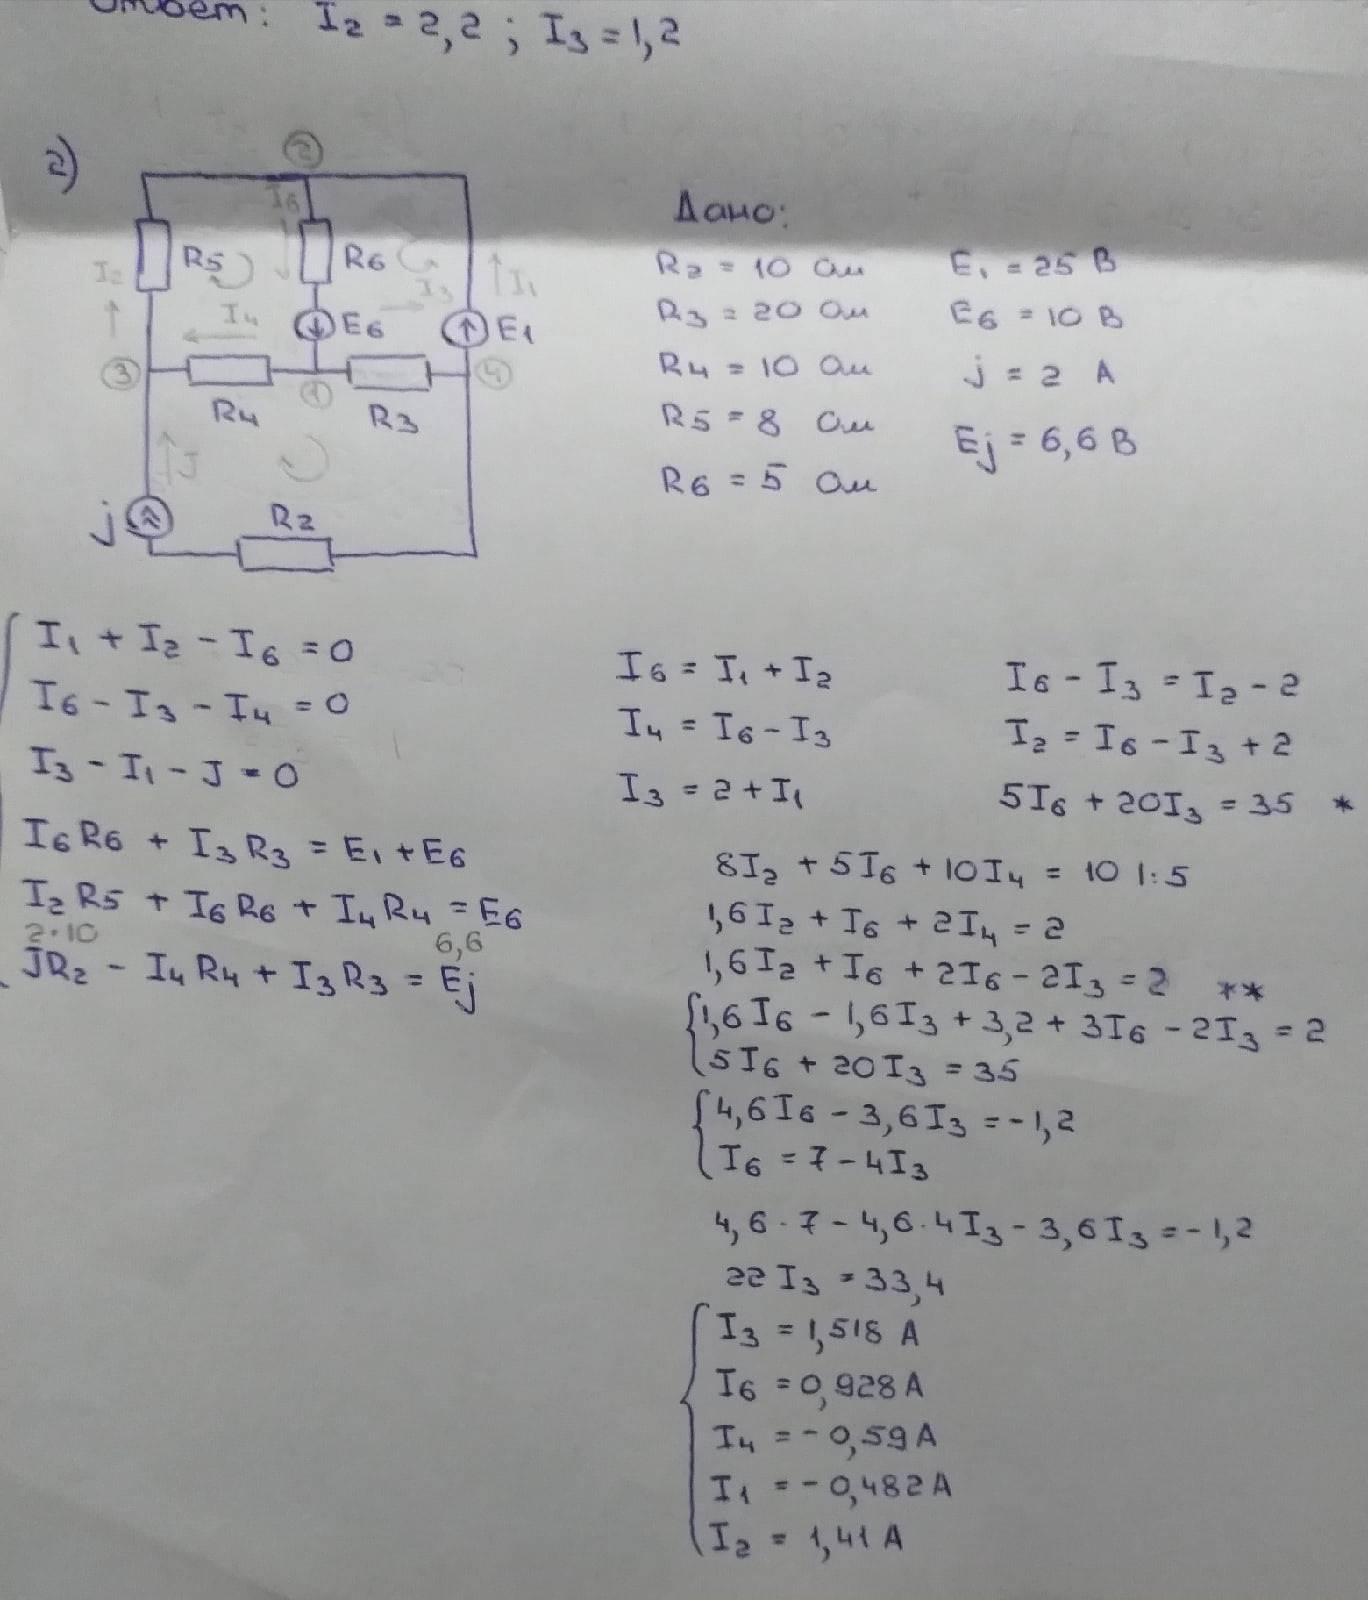 Ответ: I2 = 2,2 ; I3 = 1,2
2)
2
I6
R5
R6
I2
I3
I1
I4
E6
E1
3
1
4
R4
R3
J
j
R2
Дано:
R2 = 10 Ом
E1 = 25 В
R3 = 20 Ом
E6 = 10 В
R4 = 10 Ом
j = 2 А
R5 = 8 Ом
Ej = 6,6 В
R6 = 5 Ом
I1 + I2 - I6 = 0
I6 - I3 - I4 = 0
I3 - I1 - J = 0
I6R6 + I3R3 = E1 + E6
I2R5 + I6R6 + I4R4 = E6
2·10
6,6
JR2 - I4R4 + I3R3 = Ej
I6 = I1 + I2
I4 = I6 - I3
I3 = 2 + I1
I6 - I3 = I2 - 2
I2 = I6 - I3 + 2
5I6 + 20I3 = 35 *
8I2 + 5I6 + 10I4 = 10 |:5
1,6I2 + I6 + 2I4 = 2
1,6I2 + I6 + 2I6 - 2I3 = 2 **
1,6I6 - 1,6I3 + 3,2 + 3I6 - 2I3 = 2
5I6 + 20I3 = 35
4,6I6 - 3,6I3 = -1,2
I6 = 7 - 4I3
4,6·7 - 4,6·4I3 - 3,6I3 = -1,2
22I3 = 33,4
I3 = 1,518 А
I6 = 0,928 А
I4 = -0,59 А
I1 = -0,482 А
I2 = 1,41 А